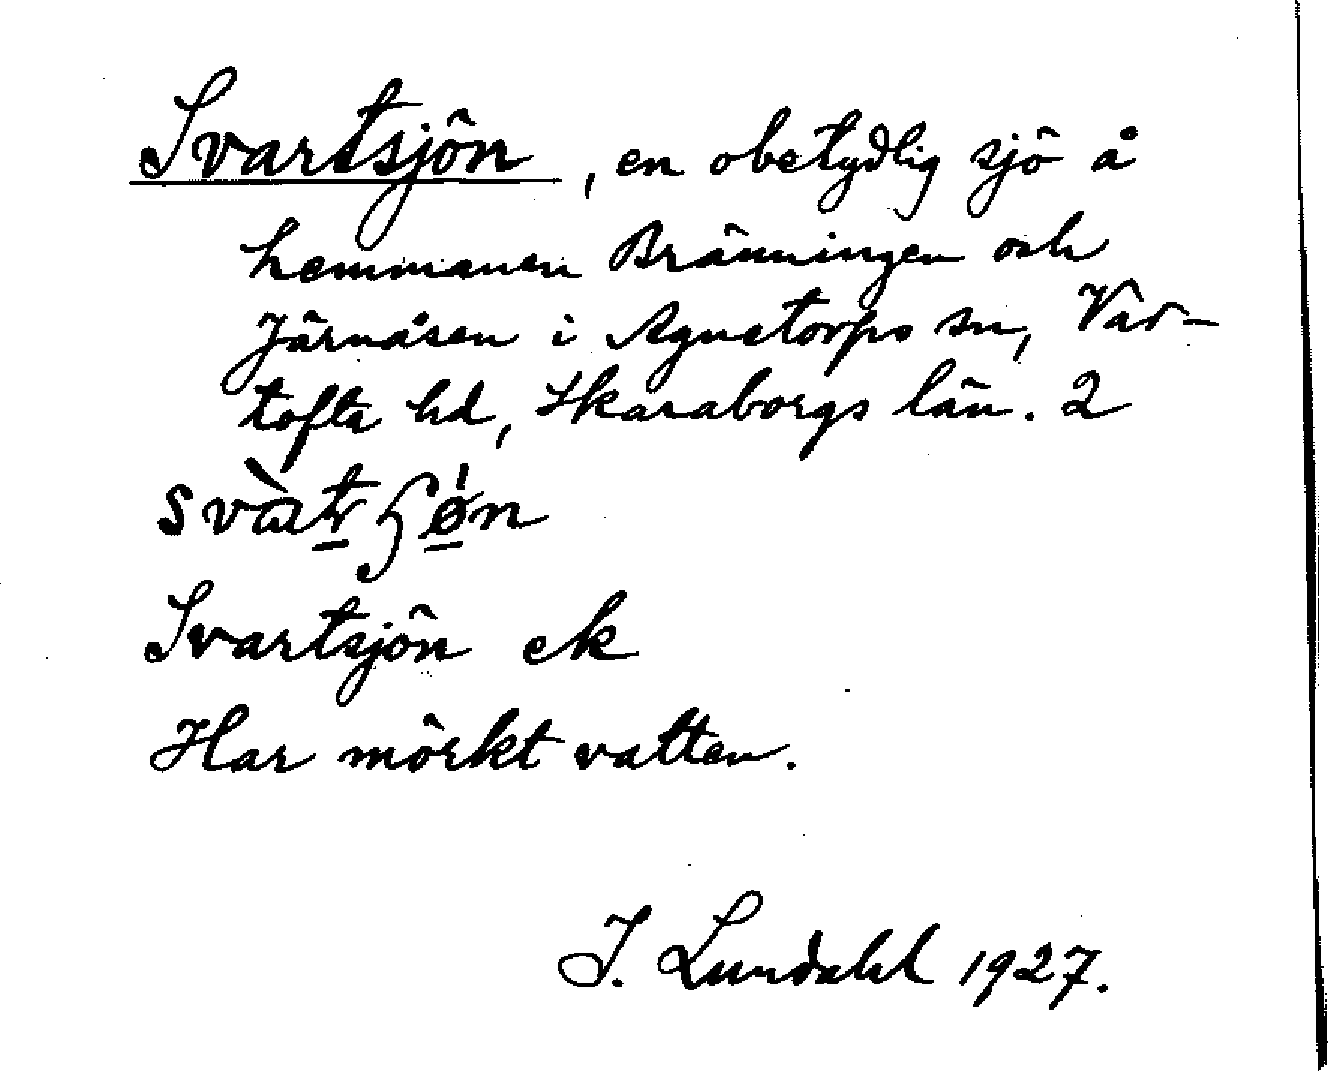 Svartsjön, en obetydlig sjö å
hemmanen Bränningen och
Järnåsen i Agnetorps sn, Var-
tofta hd, Skaraborgs län. 2
Svartsjön ek
Har mörkt vatten.
J. Lundahl 1927.